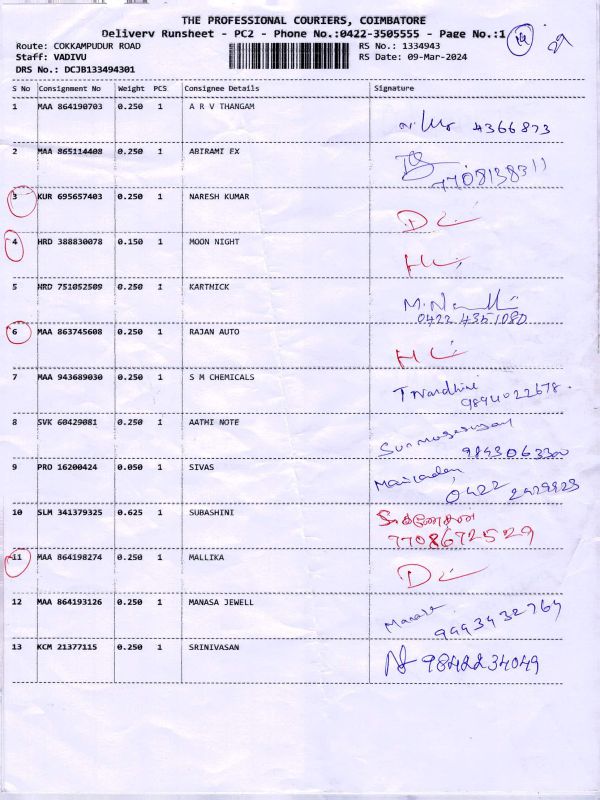 THE PROFESSIONAL COURIERS, COIMBATORE
Delivery Runsheet - PC2 - Phone No.:0422-3505555 - Page No.:1
Route: COKKAMPUDUR ROAD
RS No.: 1334943
Staff: VADIVU
RS Date: 09-Mar-2024
DRS No.: DCJB133494301
S No Consignment No Weight PCS Consignee Details Signature
1 MAA 864190703 0.250 1 A R V THANGAM
4366873
2 MAA 865114408 0.250 1 ABIRAMI EX
7708138311
3 KUR 695657403 0.250 1 NARESH KUMAR
4 HRD 388830078 0.150 1 MOON NIGHT
5 HRD 751052509 0.250 1 KARTHICK
0422 4351080
6 MAA 863745608 0.250 1 RAJAN AUTO
7 MAA 943689030 0.250 1 S M CHEMICALS
9894022678
8 SVK 60429081 0.250 1 AATHI NOTE
9 PRO 16200424 0.050 1 SIVAS
0422 2429923
10 SLM 341379325 0.625 1 SUBASHINI
7708672529
11 MAA 864198274 0.250 1 MALLIKA
12 MAA 864193126 0.250 1 MANASA JEWELL
13 KCM 21377115 0.250 1 SRINIVASAN
9842234049